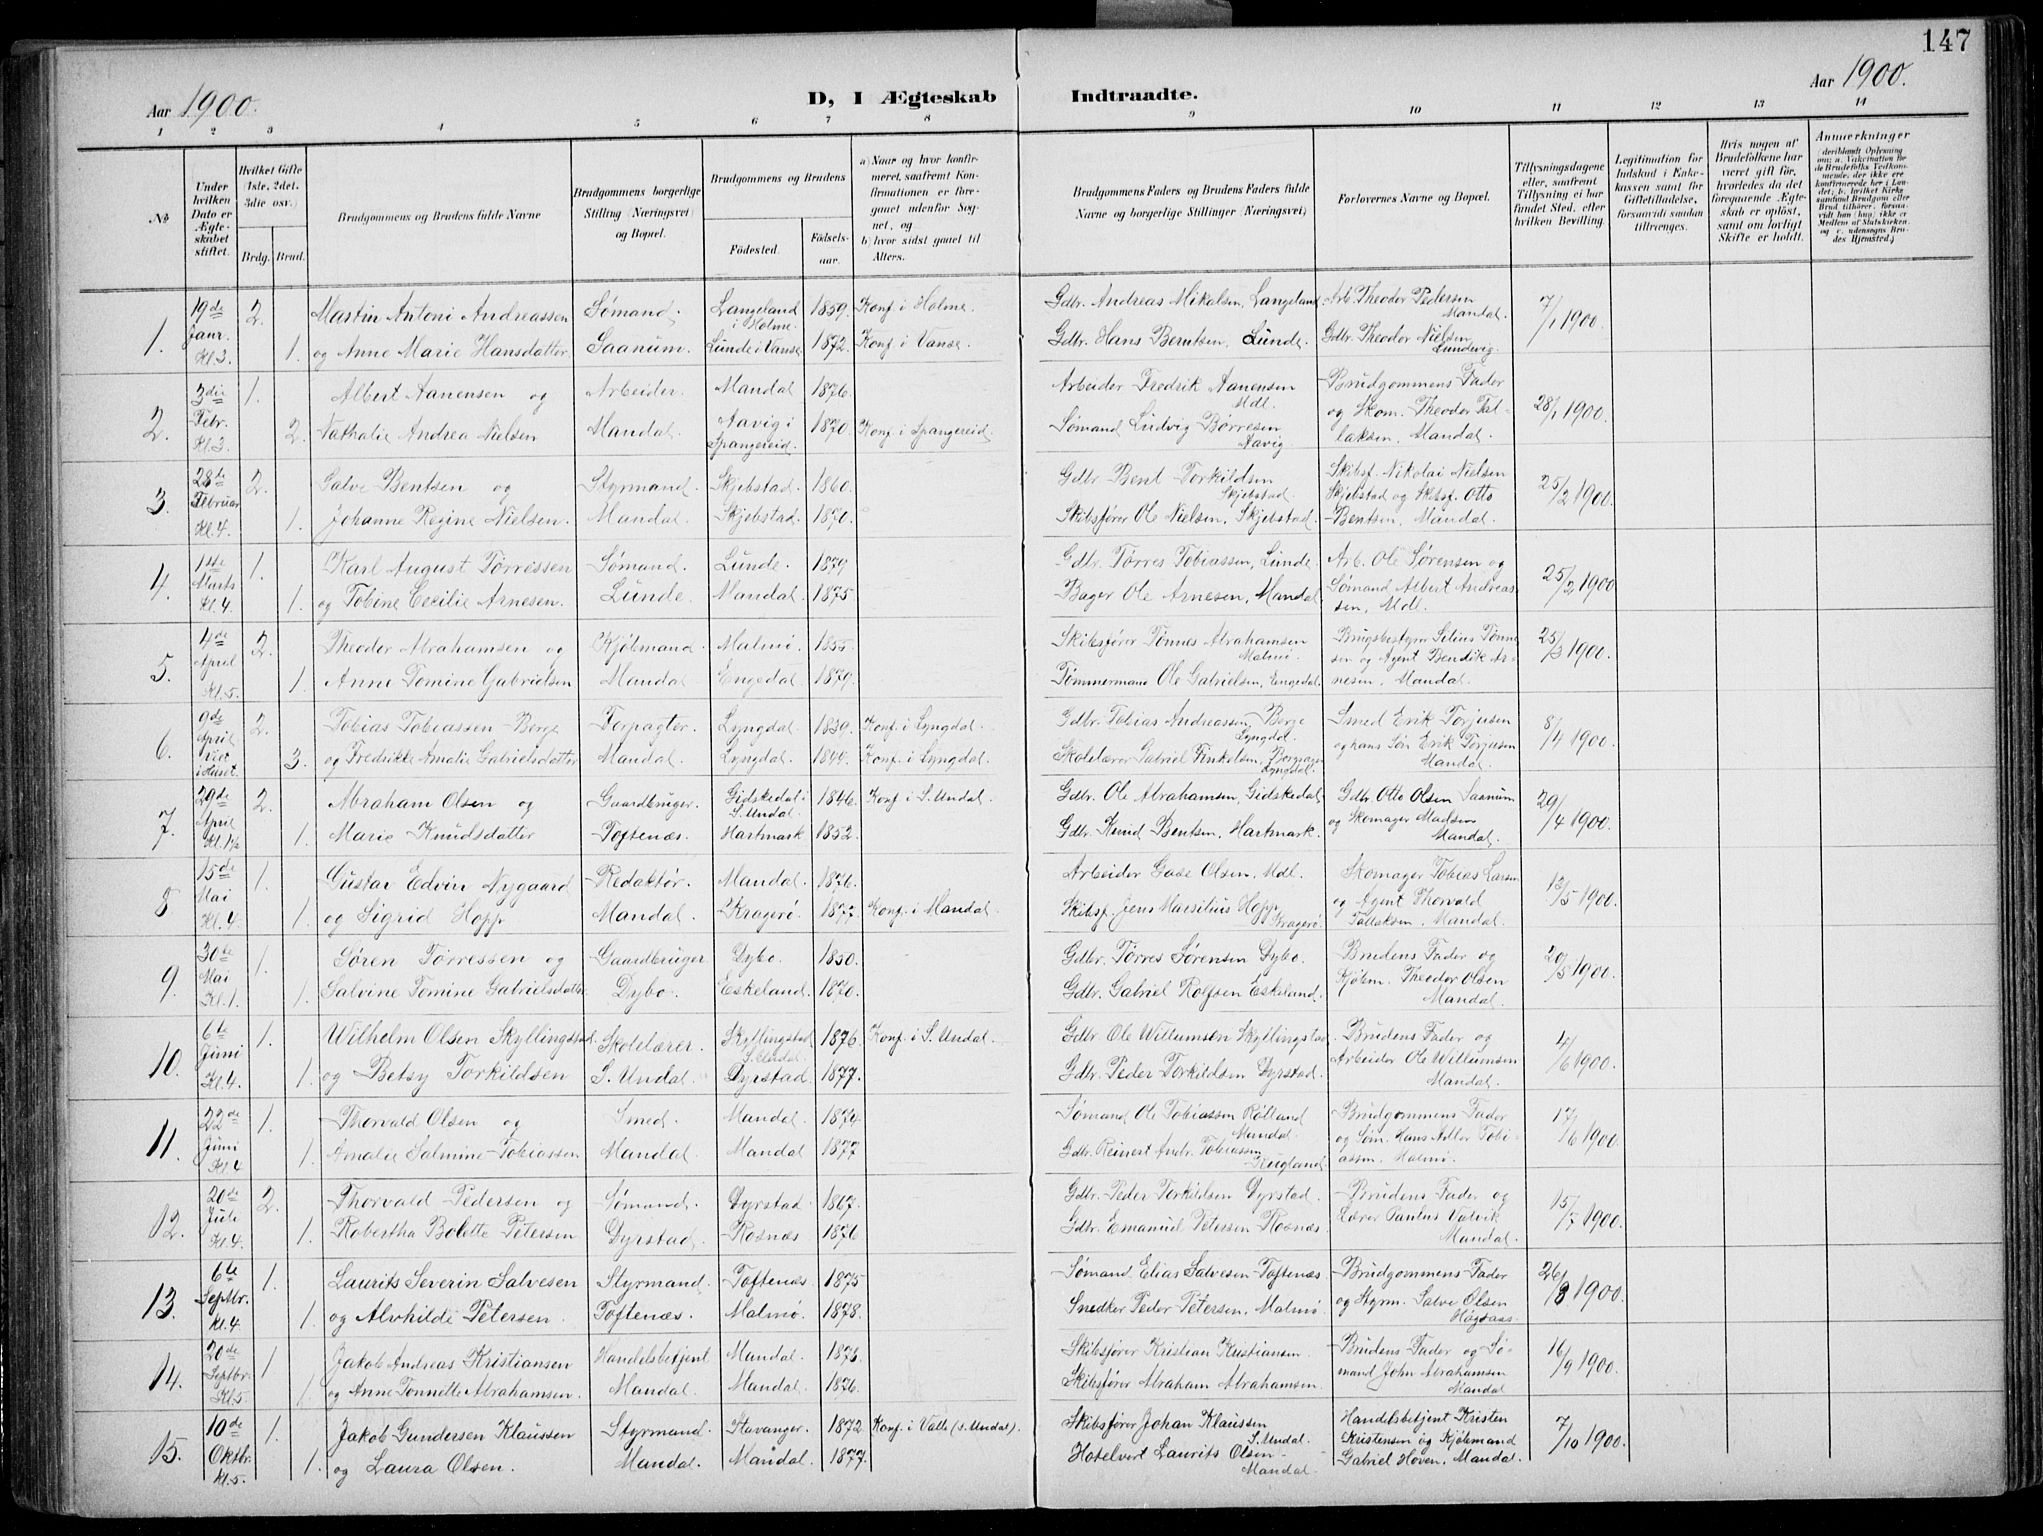 147
Aar 1900.
D, I Ægteskab Indtraadte.
Aar 1900.
1 2 3 4 5 6 7 8 9 10 11 12 13 14
No
Under hvilken Dato er Ægteskabet stiftet.
Hvilket Gifte (1ste, 2det. 3die osv.)
Brdg. Brud.
Brudgommens og Brudens fulde Navne
Brudgommens borgerlige Stilling (Næringsvei) og Bopæl.
Brudgommens og Brudens
Födested.
Födselsaar.
a) Naar og hvor konfirmeret, saafremt Konfirmationen er foregaaet udenfor Sognet, og
b) hvor sidst gaaet til Alters.
Brudgommens Faders og Brudens Faders fulde Navne og borgerlige Stillinger (Næringsvei)
Forlovernes Navne og Bopæl.
Tillysningsdagene eller, saafremt Tillysning ei har fundet Sted, efter hvilken Bevilling.
Legitimation for Indskud i Enkekassen samt for Giftetilladelse, forsaavidt saadan tiltrænges.
Hvis nogen af Brudefolkene har været gift för, hvorledes da det foregaaende Ægteskab er oplöst, samt om lovligt Skifte er holdt.
Anmerkninger
1. 19de Janr. Kl. 3. 2. Martin Antoni Andreassen Sømand. Langeland i Holme. 1859. Konf. i Holme. Gdbr. Andreas Mikalsen, Langeland. Arb. Theodor Pedersen Mandal. 7/1 1900.
1. og Anne Marie Hansdatter Saanum. Lunde i Vanse 1872. Konf. i Vanse. Gdbr. Hans Berntsen, Lunde. Gdbr. Theodor Nielsen Lundevig.
2. 3die Febr. Kl. 3. 1. Albert Aanensen og Arbeider. Mandal 1876. Arbeider Fredrik Aanensen Mdl. Brudgommens Fader 28/1 1900.
2. Nathalie Andrea Nielsen Mandal. Aavig i Spangereid. 1870. Konf. i Spangereid. Sømand Ludvig Børresen Aavig. og Skom. Theodor Tallaksen, Mandal.
3. 28de Februar Kl. 4. 2. Salve Bentsen og Styrmand. Skjebstad. 1860. Gdbr. Bent Torkildsen Skjebstad. Skibsf. Nikolai Nielsen Skjebstad og Skibsf. Otto 25/2 1900.
1. Johanne Regine Nielsen. Mandal. Skjebstad. 1870. Skibsfører Ole Nielsen, Skjebstad. Bentsen, Mandal.
4. 14de Marts Kl. 4. 1. Karl August Tørressen Sømand. Lunde. 1879 Gdbr. Tørres Tobiassen, Lunde. Arb. Ole Sørensen og 25/2 1900
1. og Tobine Cecilie Arnesen. Lunde. Mandal. 1875. Bager Ole Arnesen, Mandal. Sømand Albert Andreassen, Mdl.
5. 4de April Kl. 5. 2. Theodor Abrahamsen og Kjøbmand. Malmø. 1855. Skibsfører Tønnes Abrahamsen Malmø. Brugsbestyrer Selius Tønnesen og Agent Bendik Ar- 25/3 1900.
1. Anne Tomine Gabrielsen Mandal Engedal 1879. Tømmermand Ole Gabrielsen, Engedal. nesen, Mandal.
6. 9de April i Huset. 2. Tobias Tobiassen Berge Forpagter. Lyngdal. 1839. Konf. i Lyngdal. Gdbr. Tobias Andreassen Berge Lyngdal. Smed Erik Torjusen 8/4 1900.
3. og Fredrikke Amalie Gabrielsdatter Mandal. Lyngdal. 1844. Konf. i Lyngdal. Skolelærer Gabriel Finkelsen, Lyngdal. og hans Søn Erik Torjusen Mandal.
7. 29de April Kl. 1½ 2. Abraham Olsen og Gaardbruger. Gidskedal i S. Undal. 1846. Konf. i S. Undal. Gdbr. Ole Abrahamsen, Gidskedal. Gdbr. Otto Olsen Saanum 29/4 1900.
1. Marie Knudsdatter Toftenæs. Hartmark 1852. Gdbr. Knud Bentsen, Hartmark. og Skomager Madsen Mandal.
8 15de Mai Kl. 4. 1. Gustav Edvin Nygaard Redaktør. Mandal. 1876. Arbeider Gabe Olsen, Mdl. Skomager Tobias Larsen 13/5 1900.
1. og Sigrid Hopp Mandal. Kragerø. 1877. Konf. i Mandal. Skibsf. Jens Marsilius Hopp Kragerø. og Agent Thorvald Tallaksen, Mandal.
9. 30te Mai Kl. 1. 1. Søren Tørressen og Gaardbruger Dybo. 1850. Gdbr. Tørres Sørensen Dybo. Brudens Fader og 20/5 1900.
1. Salvine Tomine Gabrielsdatter. Dybo. Eskeland. 1870. Gdbr. Gabriel Rolfsen Eskeland. Kjøbm. Theodor Olsen Mandal.
10. 6te Juni Kl. 4. 1. Wilhelm Olsen Skyllingstad. Skolelærer. Skyllingstad S. Undal. 1876. Konf. i S. Undal. Gdbr. Ole Willumsen Skyllingstad. Brudens Fader og 4/6 1900.
1. og Betsy Torkildsen S. Undal. Dyrstad. 1877. Gdbr. Peder Torkildsen Dyrstad. Arbeider Ole Willumsen Mandal.
11. 22de Juni Kl. 4 1. Thorvald Olsen og Smed. Mandal. 1874. Sømand Ole Tobiassen Rølland Mandal. Brudgommens Fader 17/6 1900.
1. Amalie Salmine Tobiassen Mandal. Mandal 1877 Gdbr. Reinert Andr. Tobiassen og Søm. Hans Adler Tobiassen. Malmø.
12. 20de Jule Kl. 4. 2. Thorvald Pedersen og Sømand. Dyrstad. 1867. Gdbr. Peder Torkildsen Dyrstad. Brudens Fader og 15/7 1900.
1. Robertha Bolette Petersen Dyrstad. Rosnæs 1876 Gdbr. Emanuel Petersen Rosnæs. Lærer Paulus Valvik Mandal.
13. 6te Septbr. Kl. 4 1. Laurits Severin Salvesen Styrmand. Toftenæs. 1875 Sømand Elias Salvesen Toftenæs. Brudgommens Fader 26/8 1900.
1. og Alvhilde Petersen. Toftenæs. Malmø. 1878. Snedker Peder Petersen, Malmø. og Styrm. Salve Olsen
14. 20de Septbr. Kl. 5. 1 Jakob Andreas Kristiansen Handelsbetjent Mandal. 1873. Skibsfører Kristian Kristiansen. Brudens Fader og Sø- 16/9 1900.
1. og Anne Tonnette Abrahamsen. Mandal. Mandal. 1876. Skibsfører Abraham Abrahamsen. mand John Abrahamsen Mandal
15. 10de Oktbr. Kl. 5. 1. Jakob Gundersen Klaussen Styrmand. Stavanger. 1872 Konf. i Valle (S. Undal). Skibsfører Johan Klaussen S. Undal. Handelsbetjent Kristen Kristensen og Kjøbmand 7/10 1900.
1. og Laura Olsen. Mandal. Mandal. 1877. Hotelvert Laurits Olsen Mandal. Gabriel Hoven, Mandal.